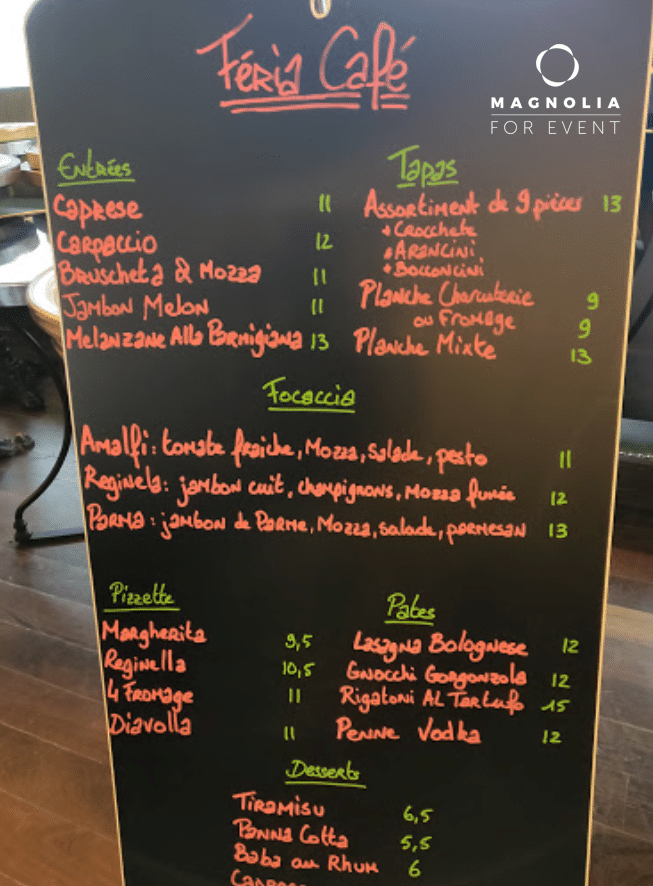 Féria Café
MAGNOLIA
FOR EVENT
Entrées
Caprese 11
Carpaccio 12
Bruscheta & Mozza 11
Jambon Melon 11
Melanzane Alla Parmigiana 13
Tapas
Assortiment de 9 pièces 13
+ Crocchete
+ Arancini
+ Bocconcini
Planche Charcuterie 9
ou Fromage 9
Planche Mixte 13
Focaccia
Amalfi: tomate fraiche, Mozza, Salade, pesto 11
Reginela: jambon cuit, champignons, Mozza fumée 12
Parma: jambon de Parme, Mozza, salade, parmesan 13
Pizzette
Margherita 9,5
Reginella 10,5
4 Fromage 11
Diavolla 11
Pates
Lasagna Bolognese 12
Gnocchi Gorgonzola 12
Rigatoni Al Tartufo 15
Penne Vodka 12
Desserts
Tiramisu 6,5
Panna Cotta 5,5
Baba au Rhum 6